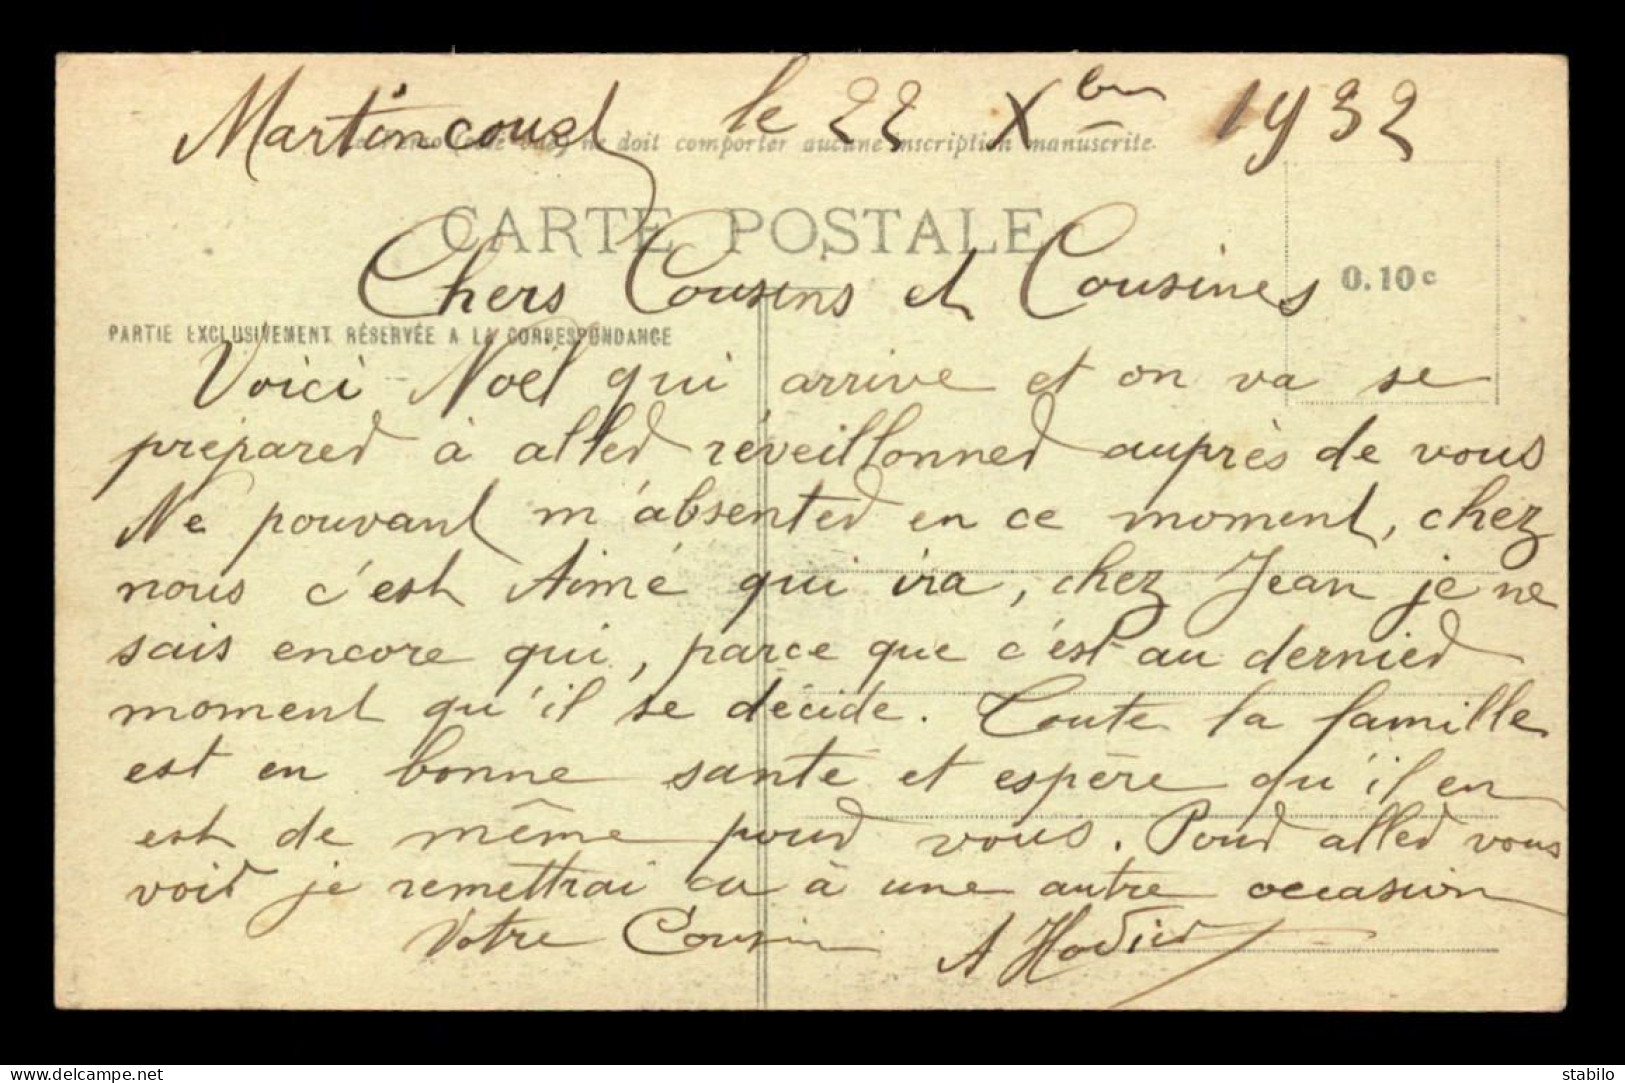 Martincourt le 22 Xbre 1932
ne doit comporter aucune inscription manuscrite.
CARTE POSTALE
Chers Cousins et Cousines
0.10 c
PARTIE EXCLUSIVEMENT RÉSERVÉE A LA CORRESPONDANCE
Voici Noël qui arrive et on va se
préparer à aller réveillonner auprès de vous
Ne pouvant m'absenter en ce moment, chez
nous c'est Aimé qui ira, chez Jean je ne
sais encore qui, parce que c'est au dernier
moment qu'il se décide. Toute la famille
est en bonne santé et espère qu'il en
est de même pour vous. Pour aller vous
voir je remettrai ça à une autre occasion
Votre Cousin A Hodier
www.delcampe.net
stabilo